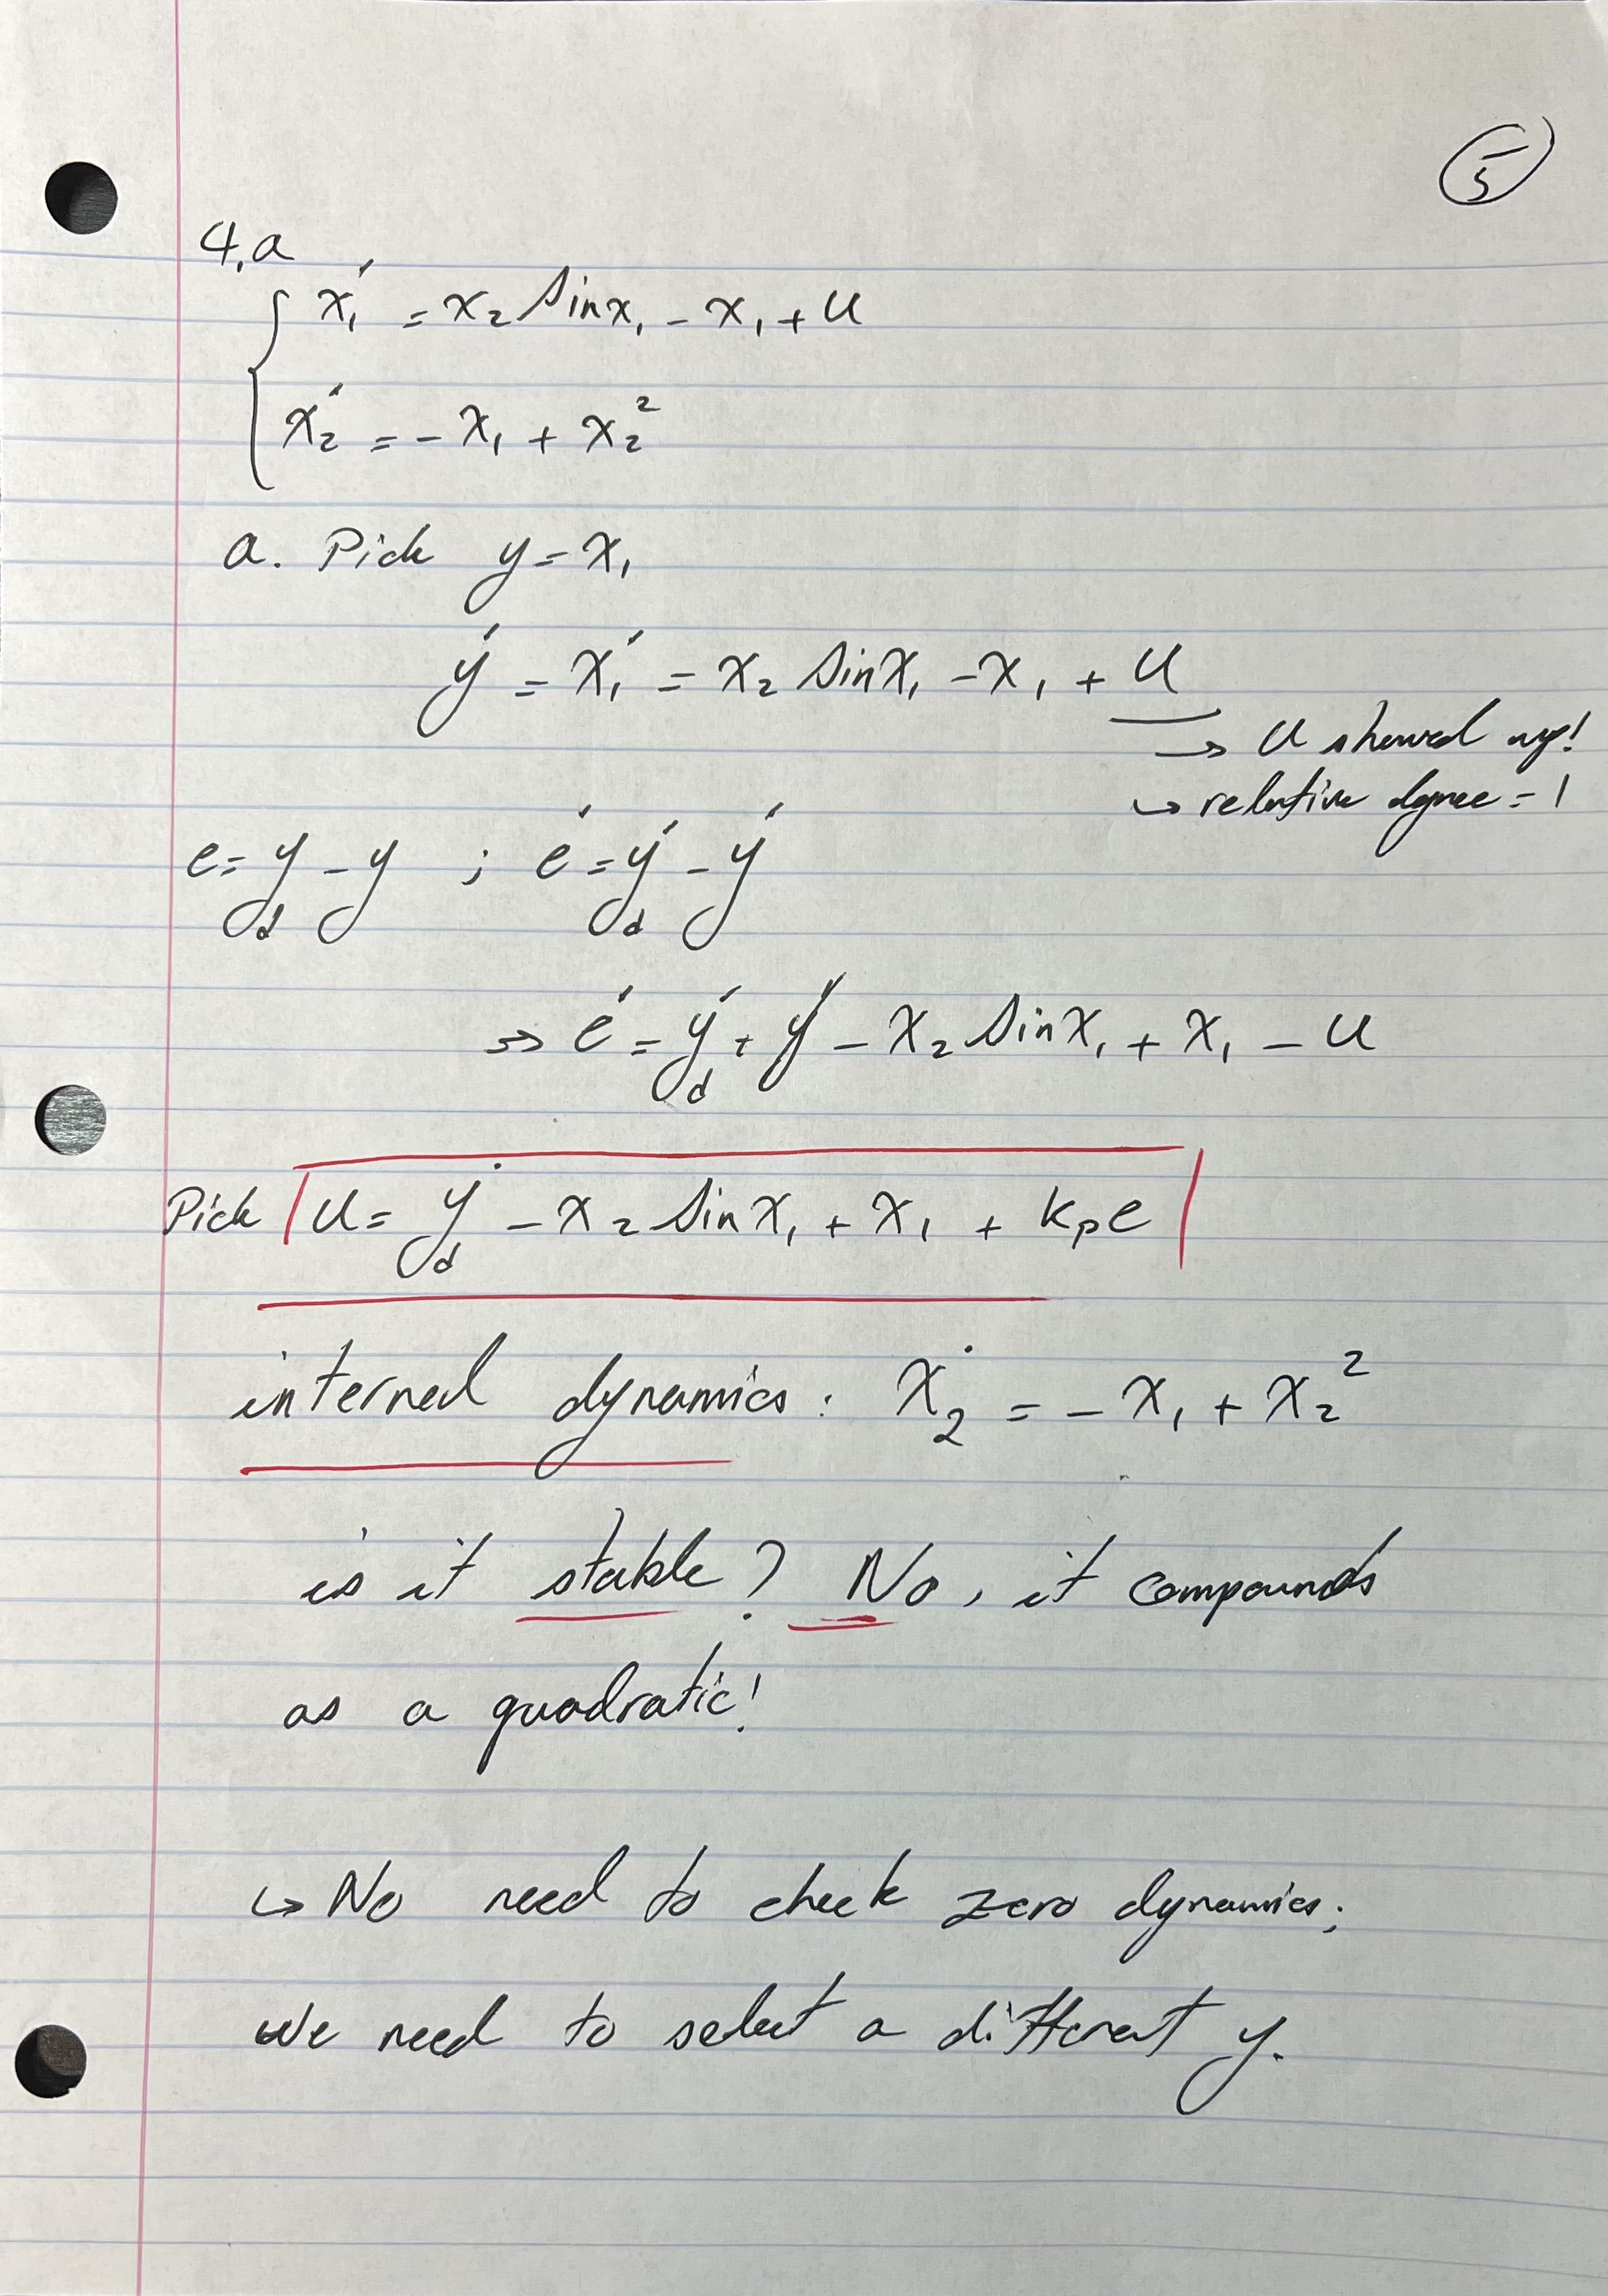 5
4.a
x₁' = x₂ sinx₁ - x₁ + u
x₂' = - x₁ + x₂²
a. Pick y = x₁
y' = x₁' = x₂ sinx₁ - x₁ + u
→ u showed up!
↳ relative degree = 1
e = y_d - y ; e' = y_d' - y'
⇒ e' = y_d' + y' - x₂ sinx₁ + x₁ - u
Pick u = ẏ_d - x₂ sinx₁ + x₁ + kₚe
internal dynamics : ẋ₂ = - x₁ + x₂²
is it stable? No, it compounds
as a quadratic!
↳ No need to check zero dynamics;
we need to select a different y.